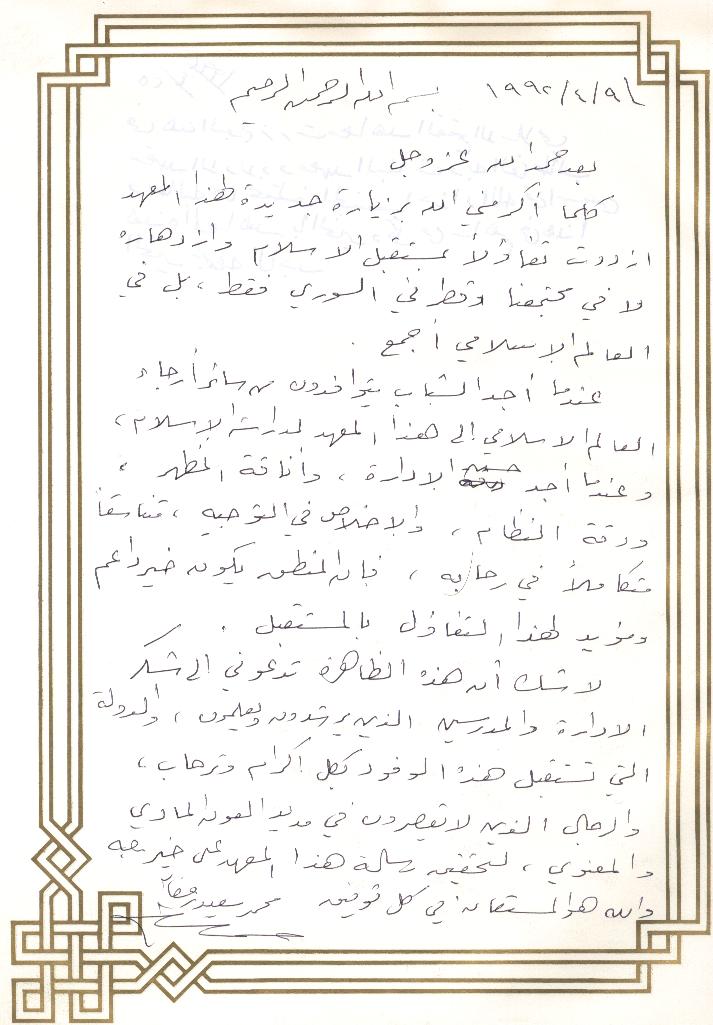 بسم الله الرحمن الرحيم ١٩٩٢/٤/٩
بعد حمد الله عز وجل
كلما أكرمني الله بزيارة جديدة لهذا المعهد
ازددت تفاؤلاً بمستقبل الإسلام وازدهاره
لا في مجتمعنا وقطرنا السوري فقط، بل في
العالم الإسلامي أجمع .
عندما أجد الشباب يتوافدون من سائر أرجاء
العالم الإسلامي إلى هذا المعهد لدراسة الإسلام،
وعندما أجد حسن الإدارة، وأناقة المظهر،
ودقة النظام، والإخلاص في التوجيه، تناسقاً
متكاملاً في رحابه، فإن المنطق يكون خير داعم
ومؤيد لهذا التفاؤل بالمستقبل .
لا شك أن هذه الظاهرة تدعوني إلى شكر
الإدارة والمدرسين الذين يرشدون ويعلمون، والدولة
التي تستقبل هذه الوفود بكل إكرام وترحاب،
والرجال الذين لا يقصرون في مد يد العون المادي
والمعنوي، لتحقيق رسالة هذا المعهد على خير
والله هو المستعان في كل توفيق محمد سعيد رمضان